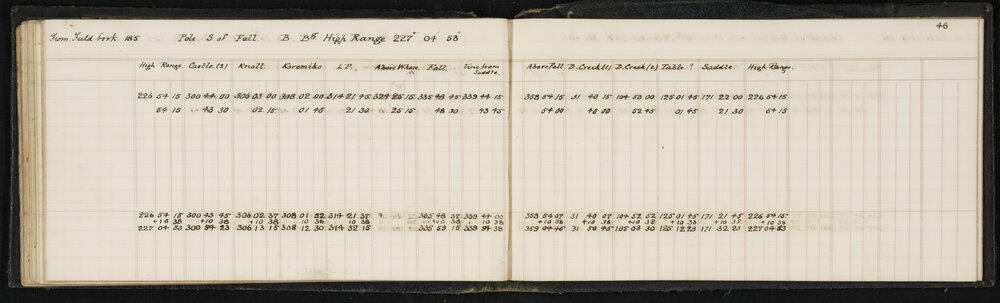 46
From Field book 185 Pole S of Fall B Bs High Range 227° 04' 53"
High Range. Castle (2) Knoll. Koromiko L.P. Above Whare Fall. Line from Saddle. Above Fall D. Creek (1) D. Creek (2) Table.? Saddle. High Range.
226 54 15 300 44 00 306 03 00 308 02 00 314 21 45 324 25 15 335 48 45 339 44 15 353 54 15 31 40 15 104 53 00 125 01 45 171 22 00 226 54 15
54 15 43 30 02 15 01 45 21 30 25 15 48 30 43 45 54 00 40 00 52 45 01 45 21 30 54 15
226 54 15 300 43 45 306 02 37 308 01 52 314 21 37 48 37 339 44 00 353 54 07 31 40 07 104 52 52 125 01 45 171 21 45 226 54 15
+10 38 +10 38 +10 38 10 38 +10 38 +10 38 +10 38 +10 38 +10 38 +10 38 +10 38 +10 38 +10 38
227 04 53 300 54 23 306 13 15 308 12 30 314 32 15 59 15 339 54 38 04 45 31 50 45 105 03 30 125 12 23 171 32 23 227 04 53